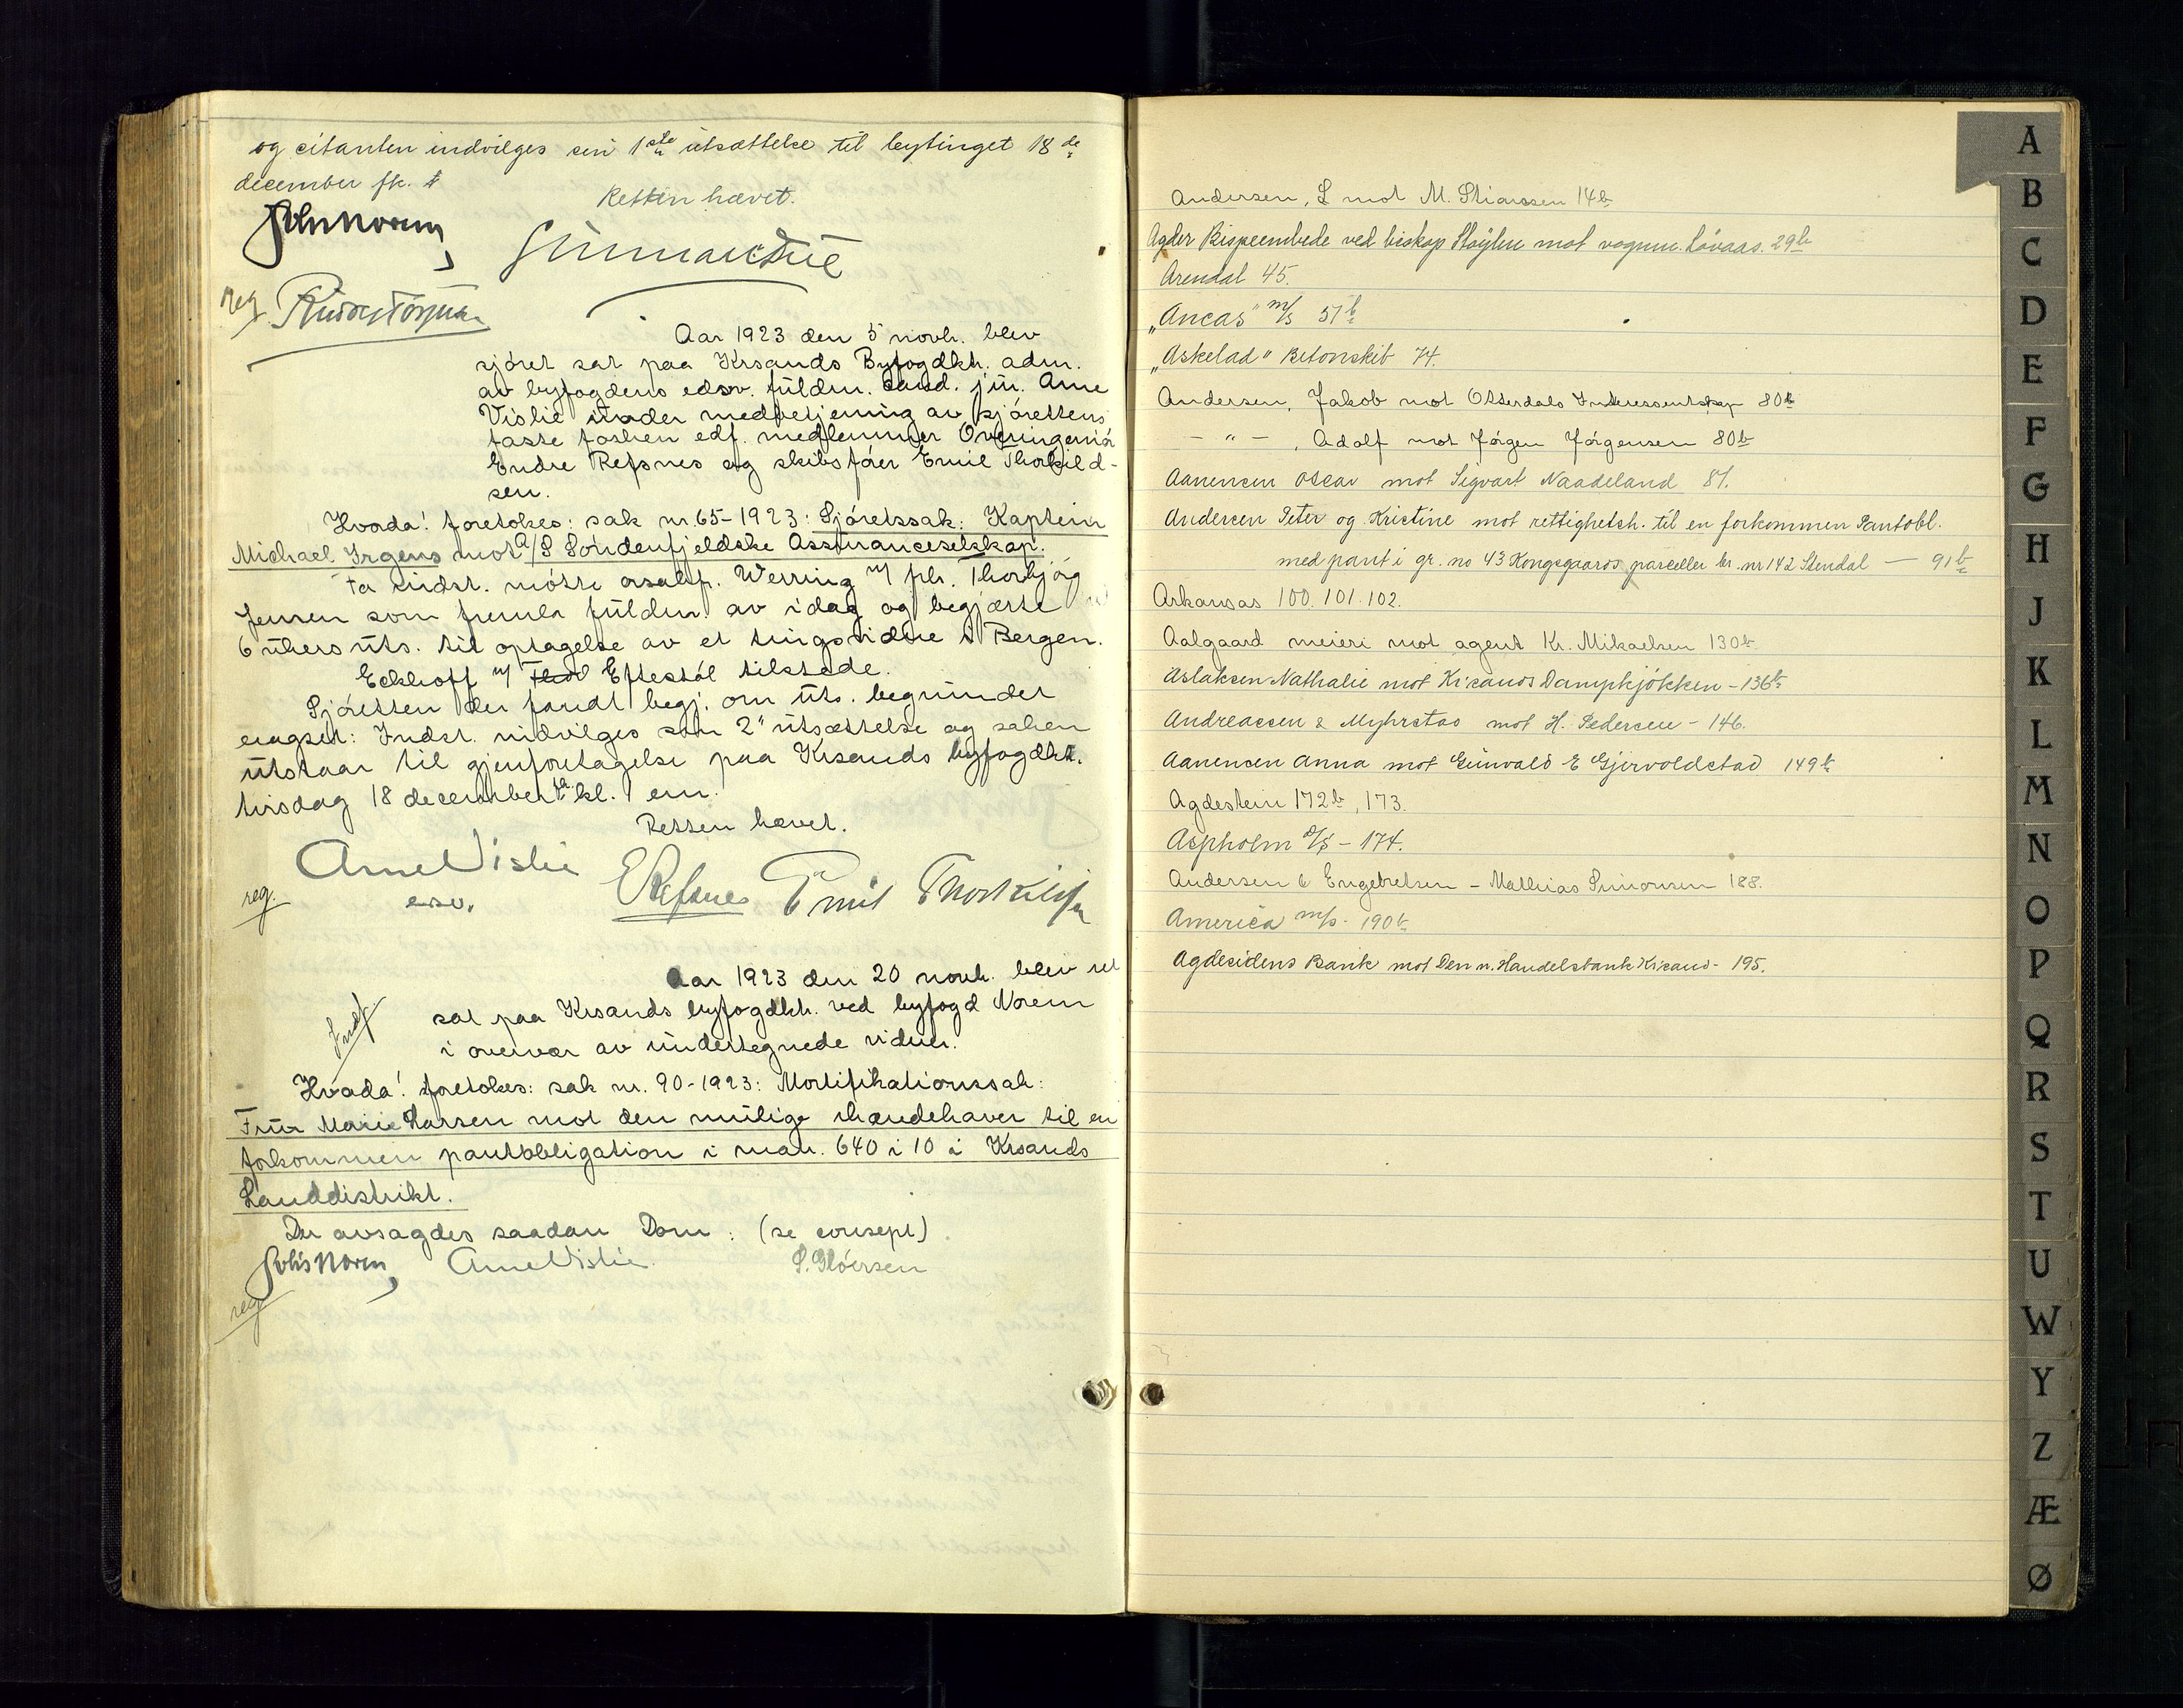 og citanten indvilges sin 1ste utsættelse til bytinget 18de
december fk.
Retten hævet.
John Norem
reg
Aar 1923 den 5 novb. blev
sjøret sat paa Krsands Byfogdkt. adm.
av byfogdens edsv. fuldm. cand. jur. Arne
Vislie under medbetjening av sjørettens
faste forhen edf. medlemmer Overingeniør
Endre Refsnes og skibsfører Emil Thorkild-
sen.
Hvorda! foretokes: sak nr. 65-1923: Sjøretssak: Kaptein
Michael Irgens mot A/S Søndenfjeldske Assuranceselskap.
Fa indst. møtte orsakf. Werring v/ flm. Thorbjørg
Jensen som fremla fuldm. av idag og begjærte
6 ukers uts. til optagelse av et tingsvidne i Bergen.
Eckhoff v/ Eftestøl tilstede.
Sjøretten der fandt begj. om uts. begrundet
eragtet: Indst. indvilges som 2" utsættelse og saken
utstaar til gjenforetagelse paa Krsands byfogdkt.
tirsdag 18 december kl. 1 em.
Retten hævet.
Arne Vislie
esv.
E Refsnes Emil Thorkildsen
reg.
Aar 1923 den 20 novb. blev ret
sat paa Krsands byfogdkt. ved byfogd Norem
i overvær av undertegnede vidner.
Indf.
Hvorda! foretokes: sak nr. 90-1923: Mortifikationssak:
Frue Marie Larsen mot den mulige ihændehaver til en
forkommen pantobligation i matr. 640 i 10 i Krsands
Landdistrikt.
Der avsagdes saadan Dom: (se consept)
Johs Norem Arne Vislie S. Gløersen
reg
Andersen, L mot M. Stiansen 14b
Agder Bispeembede ved biskop Støylen mot vognm. Løvaas. 29b
Arendal 45.
"Ancas" m/s 57b
"Askelad" Betonskib 74.
Andersen, Jakob mot Otterdals Interessentskap 80b
- " - , Adolf mot Jørgen Jørgensen 80b
Aanensen Oscar mot Sigvart Naadeland 81.
Andersen Peter og Kristine mot rettighetsh. til en forkommen Pantobl.
med pant i gr. no 43 Kongsgaards parceller br. nr 142 Stendal — 91b
Arkansas 100. 101. 102.
Aalgaard meieri mot agent Kr. Mikaelsen 130b
Aslaksen Nathalie mot Kr.sands Dampkjøkken - 136b
Andreassen & Myhrstad mot H. Pedersen - 146.
Aanensen Anna mot Gunvald E Gjervoldstad 149b
Agdestein 172b, 173.
Aspholm d/s - 174.
Andersen & Engebretsen - Mathias Simonsen 188.
America m/s - 190b
Agdesidens Bank mot Den n. Handelsbank Kr.sand - 195.
A
B
C
D
E
F
G
H
J
K
L
M
N
O
P
Q
R
S
T
U
W
Y
Z
Æ
Ø